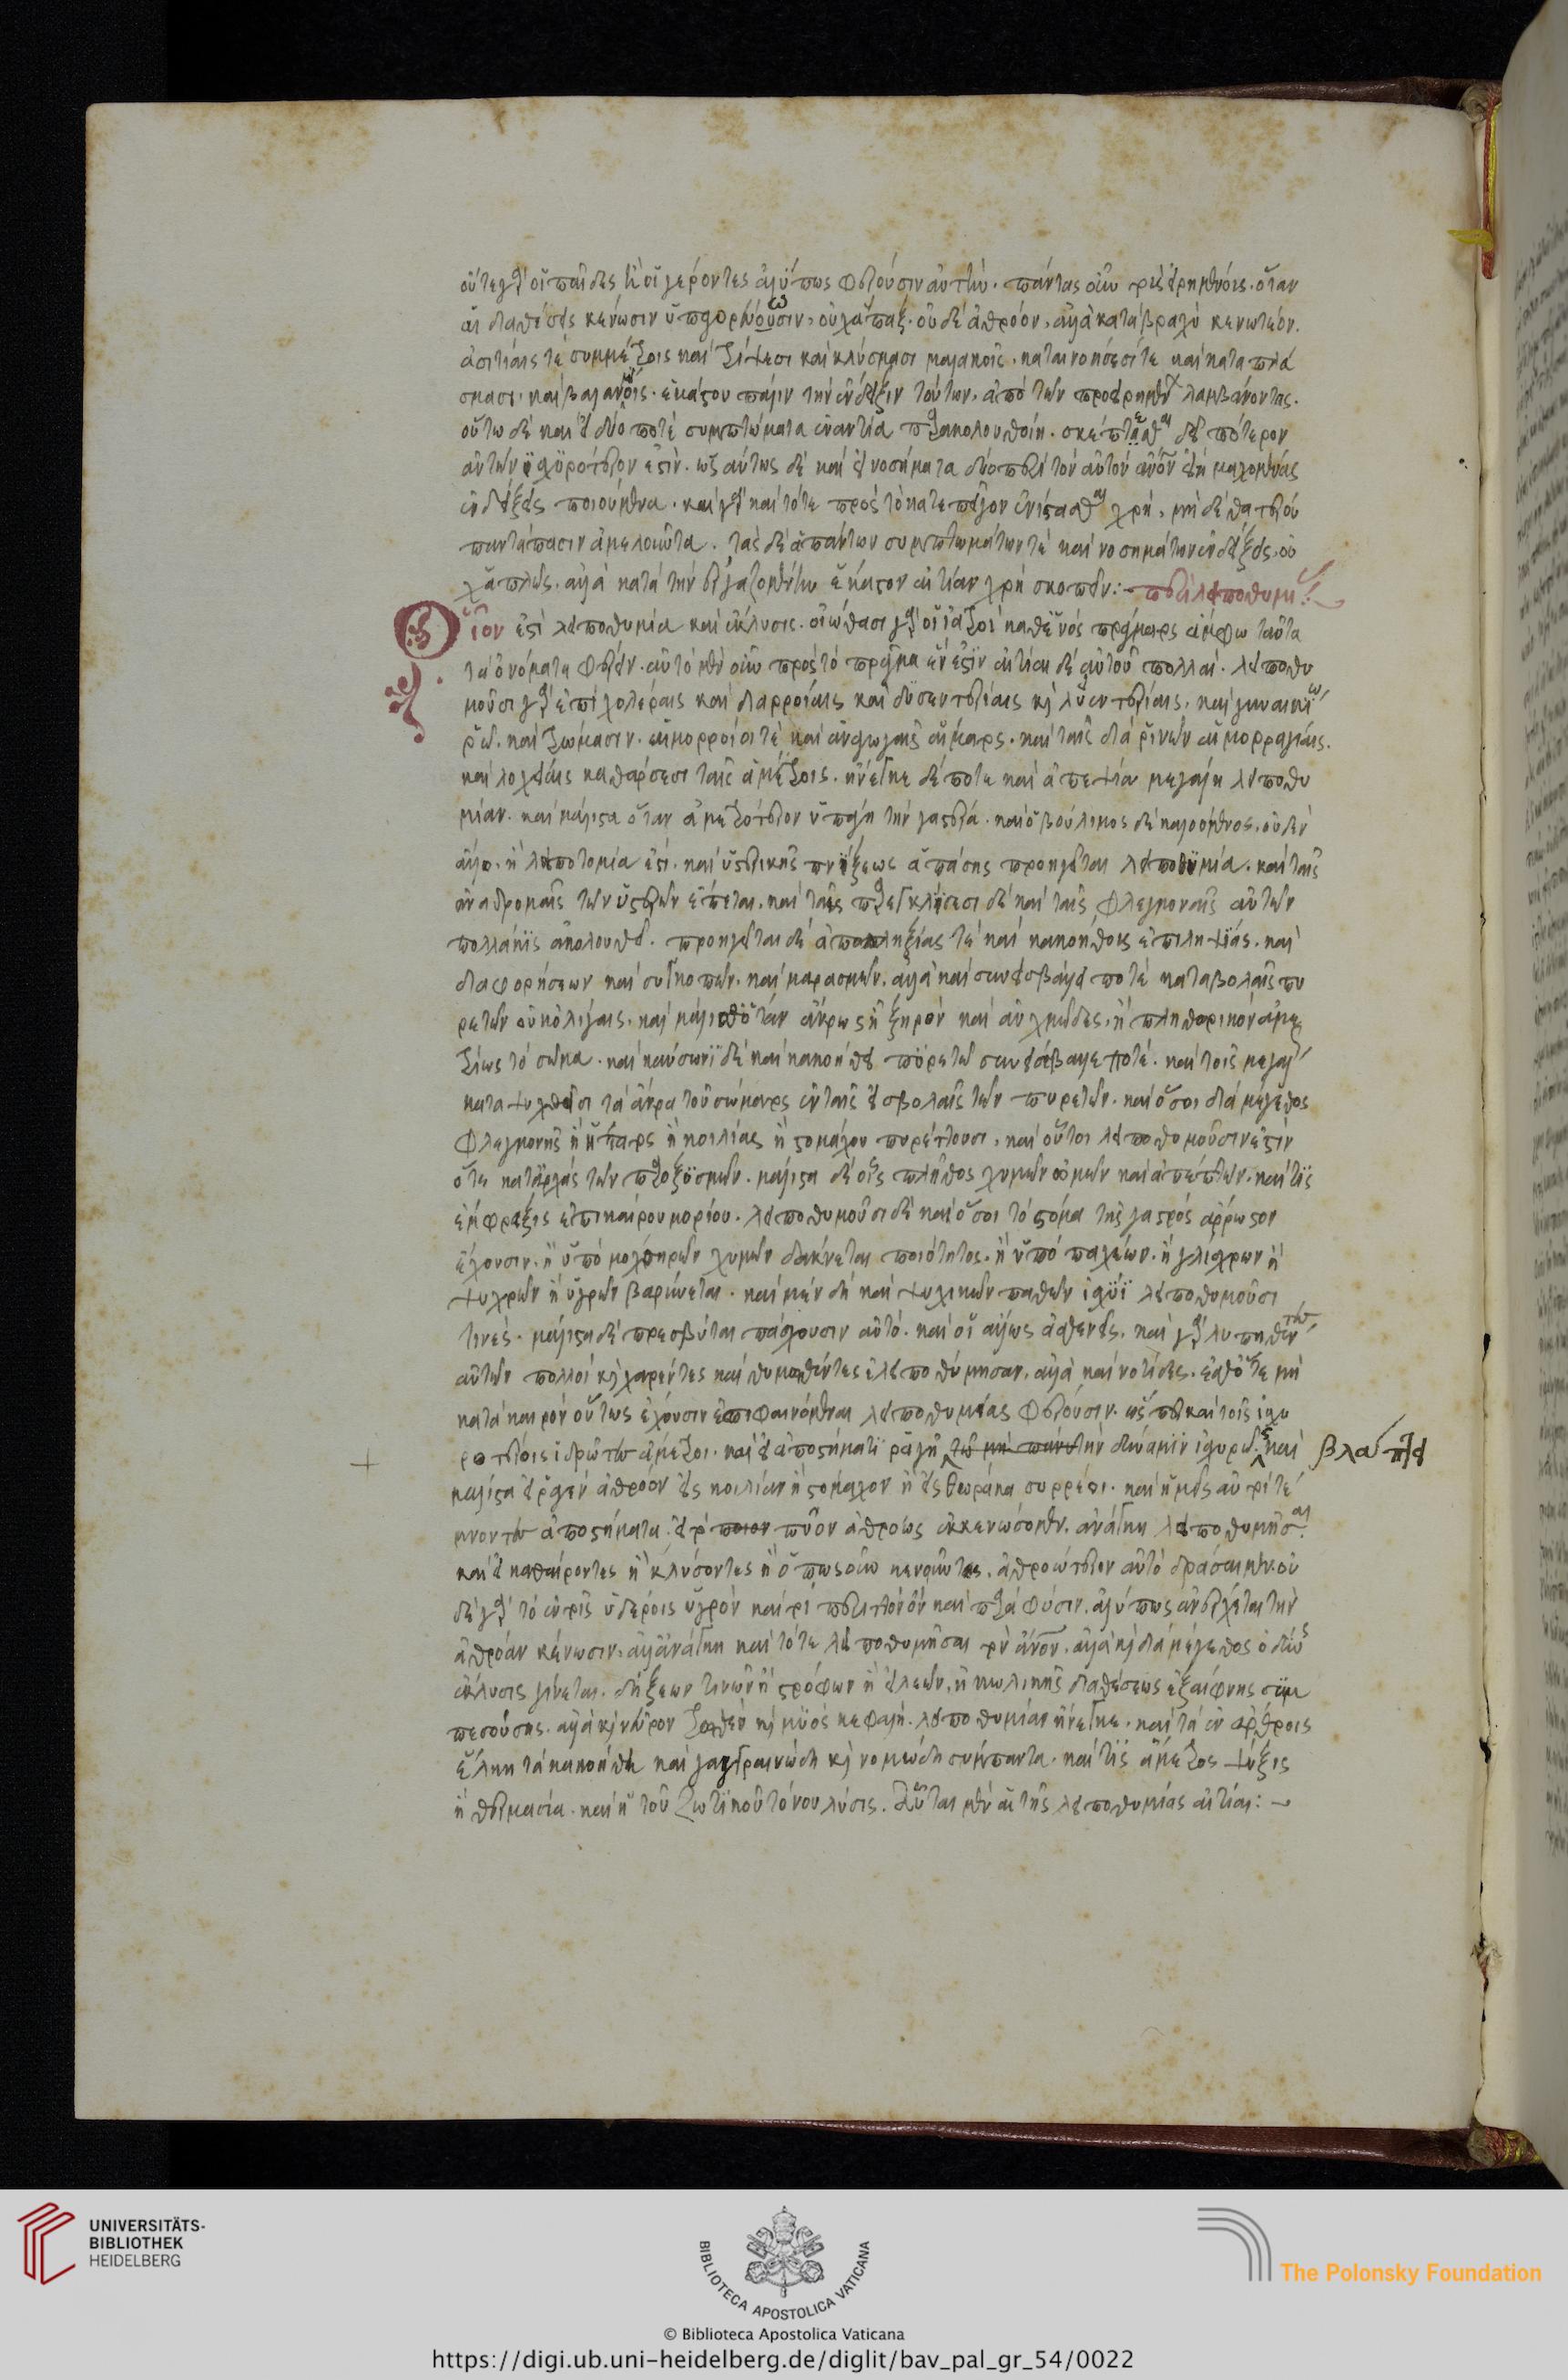 οὔτε γὰρ οἱ παῖδες οὔτε οἱ γέροντες ἀλύπως φέρουσιν αὐτήν. πάντας οὖν τοὺς εἰρημένους. ὅταν
αἱ διαθέσεις κένωσιν ὑπαγορεύουσιν, οὐχ ἅπαξ. οὐδὲ ἀθρόον, ἀλλὰ κατὰ βραχὺ κενωτέον.
ἀσιτίαις τε συμμέτροις καὶ τρίψεσι καὶ κλύσμασι μαλακοῖς. καταιονήσεσί τε καὶ καταπλά
σμασι. καὶ βαλάνοις. ἑκάστου πάλιν τὴν ἔνδειξιν τούτων, ἀπὸ τῶν προειρημένων λαμβάνοντας.
οὕτω δὲ καὶ εἰ δύο ποτὲ συμπτώματα ἐναντία παρακολουθοίη. σκέπτεσθαι δεῖ πότερον
αὐτῶν ἰσχυρότερον ἐστίν. ὡσαύτως δὲ καὶ εἰ νοσήματα δύο περὶ τὸν αὐτὸν ἄνθρωπον εἴη μαχομένας
ἐνδείξεις ποιούμενα. καὶ γὰρ καὶ τότε πρὸς τὸ κατεπεῖγον ἐνίστασθαι χρή, μηδὲ θατέρου
παντάπασιν ἀμελοῦντα. τὰς δὲ ἁπάντων συμπτωμάτων τὲ καὶ νοσημάτων ἐνδείξεις, οὐ
χ ἁπλῶς. ἀλλὰ κατὰ τὴν ἐργαζομένην ἕκαστον αἰτίαν χρὴ σκοπεῖν: περὶ λειποθυμίας
Οἷον ἐστὶ λειποθυμία καὶ ἔκλυσις. εἰώθασι γὰρ οἱ ἰατροὶ καθ' ἑνὸς πράγματος ἄμφω ταῦτα
τὰ ὀνόματα φέρειν. αὐτὸ μὲν οὖν πρὸς τὸ πρᾶγμα ἕν ἐστιν αἰτίαι δὲ αὐτοῦ πολλαί. λειποθυ
μοῦσι γὰρ ἐπὶ χολέραις καὶ διαρροίαις καὶ δυσεντερίαις καὶ λειεντερίαις. καὶ γυναικείῳ
ῥῷ. καὶ τρώμασιν. αἱμορροίσι τὲ καὶ ἀναγωγαῖς αἵματος. καὶ ταῖς διὰ ῥινῶν αἱμορραγίαις.
καὶ λοχείαις καθάρσεσι ταῖς ἀμέτροις. ἤνεγκε δέ ποτε καὶ ἀπεψία μεγάλη λειποθυ
μίαν. καὶ μάλιστα ὅταν ἀμετρότερον ὑπάγῃ τὴν γαστέρα. καὶ ὁ βούλιμος δὲ καλούμενος, οὐδὲν
ἄλλο. ἢ λειποτομία ἐστί. καὶ ὑστερικῆς πνίξεως ἁπάσης προηγεῖται λειποθυμία. καὶ ταῖς
ἀναδρομαῖς τῶν ὑστερῶν ἕπεται. καὶ ταῖς παρεγκλίσεσι δὲ καὶ ταῖς φλεγμοναῖς αὐτῶν
πολλάκις ἀκολουθεῖ. προηγεῖται δὲ ἀποπληξίας τὲ καὶ κακοήθους ἐπιληψίας. καὶ
διαφορήσεων καὶ συγκοπῶν. καὶ μαρασμῶν. ἀλλὰ καὶ συνεισβάλλει ποτὲ καταβολαῖς πυ
ρετῶν οὐκ ὀλίγαις. καὶ μάλισθ' ὅταν ἄκρως ᾖ ξηρὸν καὶ αὐχμῶδες. ἢ πληθωρικὸν ἀμε
τρίως τὸ σῶμα. καὶ καύσωνι δὲ καὶ κακοήθει πυρετῷ συνεισέβαλλέ ποτε. καὶ τοῖς μεγάλως
καταψυχθεῖσι τὰ ἄκρα τοῦ σώματος ἐν ταῖς εἰσβολαῖς τῶν πυρετῶν. καὶ ὅσοι διὰ μέγεθος
φλεγμονῆς ἢ ἥπατος ἢ κοιλίας ἢ στομάχου πυρέττουσι. καὶ οὗτοι λειποθυμοῦσιν ἔστιν
ὅτε κατ' ἀρχὰς τῶν παροξυσμῶν. μάλιστα δὲ οἷς πλῆθος χυμῶν ὠμῶν καὶ ἀπέπτων. καὶ τὶς
ἔμφραξις ἐπικαίρου μορίου. λειποθυμοῦσι δὲ καὶ ὅσοι τὸ στόμα τῆς γαστρὸς ἄρρωστον
ἔχουσιν. ἢ ὑπὸ μοχθηρῶν χυμῶν δάκνεται ποιότητος. ἢ ὑπὸ παχέων. ἢ γλίσχρων ἢ
ψυχρῶν ἢ ὑγρῶν βαρύνεται. καὶ μὲν δὴ καὶ ψυχικῶν παθῶν ἰσχύϊ λειποθυμοῦσι
τινές. μάλιστα δὲ πρεσβῦται πάσχουσιν αὐτό. καὶ οἱ ἄλλως ἀσθενεῖς. καὶ γὰρ λυπηθέντων
αὐτῶν πολλοὶ καὶ χαρέντες καὶ θυμωθέντες ἐλειποθύμησαν. ἀλλὰ καὶ νοτίδες. ἔσθ' ὅτε μὴ
κατὰ καιρὸν οὕτως ἔχουσιν ἐπιφαινόμεναι λειποθυμίας φέρουσιν. ὥσπερ καὶ τοῖς ἰσχυ
ροτέροις ἱδρῶτες ἄμετροι. καὶ εἰ ἀποστήματι ῥαγῇ τῷ μὴ πάνυ τὴν δύναμιν ἰσχυρῷ. καὶ βλάπτει
μάλιστα εἰ ῥαγὲν ἀθρόον εἰς κοιλίαν ἢ στόμαχον ἢ εἰς θώρακα συρρέοι. καὶ ἡμεῖς αὐτοὶ τέ
μνοντες ἀποστήματα. εἰ τὸ ποιον πῦον ἀθρόως ἐκκενώσομεν. ἀνάγκη λειποθυμῆσαι.
καὶ εἰ καθαίροντες ἢ κλύσοντες ἢ ὅπως οὖν κενοῦντες, ἀθροώτερον αὐτὸ δράσαιμεν. οὐ
δὲ γὰρ τὸ ἐν τοῖς ὑδέροις ὑγρὸν καίτοι περιττὸν ὂν καὶ παρὰ φύσιν. ἀλύπως ἀνέχεται τὴν
ἀθρόαν κένωσιν. ἀλλ' ἀνάγκη καὶ τότε λειποθυμῆσαι τὸν ἄνθρωπον. ἀλλὰ καὶ διὰ μέγεθος ὀδύνης
ἔκλυσις γίνεται. δήξεων τινῶν ἢ στρόφων ἢ εἰλεῶν. ἢ κωλικῆς διαθέσεως ἐξαίφνης συμ
πεσούσης. ἀλλὰ καὶ νεῦρον τρωθὲν καὶ μυὸς κεφαλή. λειποθυμίαν ἤνεγκε. καὶ τὰ ἐν ἄρθροις
ἕλκη τὰ κακοήθη καὶ γαγγραινώδη καὶ νομώδη σύμπαντα. καὶ τὶς ἄμετρος ψύξις
ἢ θερμασία. καὶ ἡ τοῦ ζωτικοῦ τόνου λύσις. αὗται μὲν αἱ τῆς λειποθυμίας αἰτίαι:
UNIVERSITÄTS-
BIBLIOTHEK
HEIDELBERG
BIBLIOTECA APOSTOLICA VATICANA
The Polonsky Foundation
© Biblioteca Apostolica Vaticana
https://digi.ub.uni-heidelberg.de/diglit/bav_pal_gr_54/0022